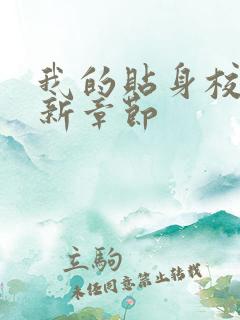 我的貼身校
新章節
立駒
未经同意禁止转载